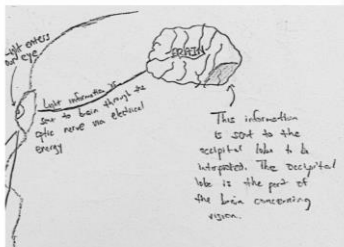 light enters
our eye
Light information is
sent to brain through the
optic nerve via electrical
energy
BRAIN
This information
is sent to the
occipital lobe to be
interpted. The occipital
lobe is the part of
the brain concerning
vision.